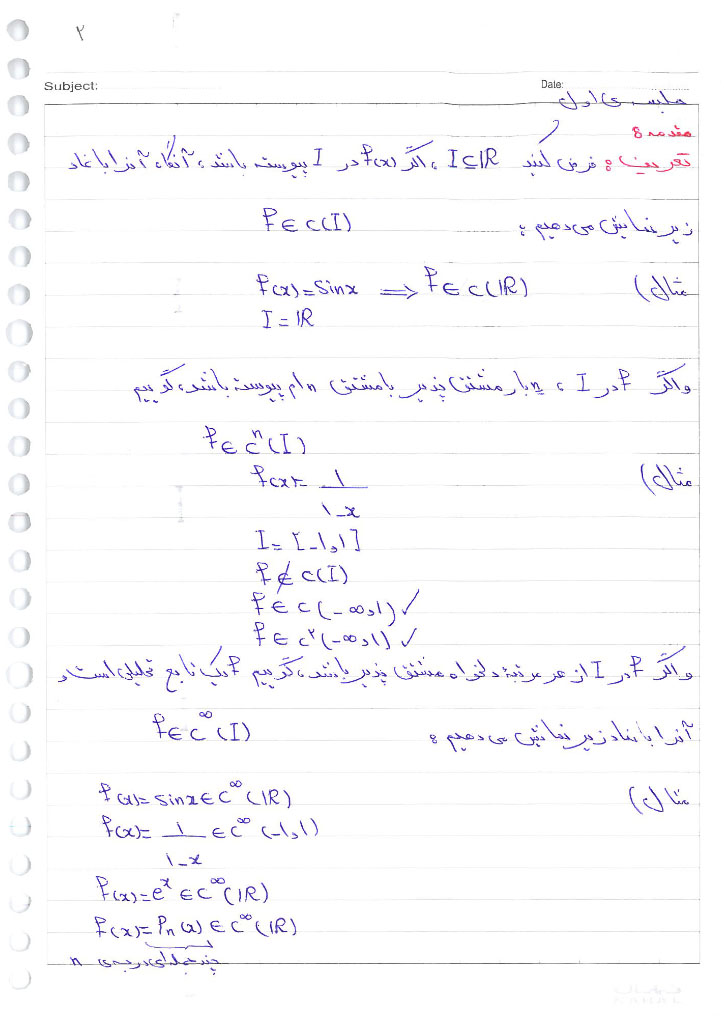 ۲
Subject:
Date:
جلسه ی اول
مقدمه:
تعریف: فرض کنید I⊆IR ، اگر f(x) در I پیوسته باشد، آنگاه آنرا با نماد
زیر نمایش می دهیم:
f ∈ c(I)
مثال) f(x)=Sinx ⟹ f ∈ c(IR)
I = IR
و اگر f در I ، n بار مشتق پذیر با مشتق n ام پیوسته باشد، گوییم
f ∈ cⁿ(I)
مثال) f(x)= ۱
۱-x
I = [-۱و۱]
f ∉ c(I)
f ∈ c(-∞و۱) ✓
f ∈ c²(-∞و۱) ✓
و اگر f در I از هر مرتبهٔ دلخواه مشتق پذیر باشد، گوییم f یک تابع تحلیلی است و
آنرا با نماد زیر نمایش می دهیم: f ∈ c^∞(I)
مثال) f(x)= sinx ∈ c^∞(IR)
f(x)= ۱ ∈ c^∞(-۱و۱)
۱-x
f(x)=e^x ∈ c^∞(IR)
f(x)= Pn(x) ∈ c^∞(IR)
چند جمله ای درجه ی n